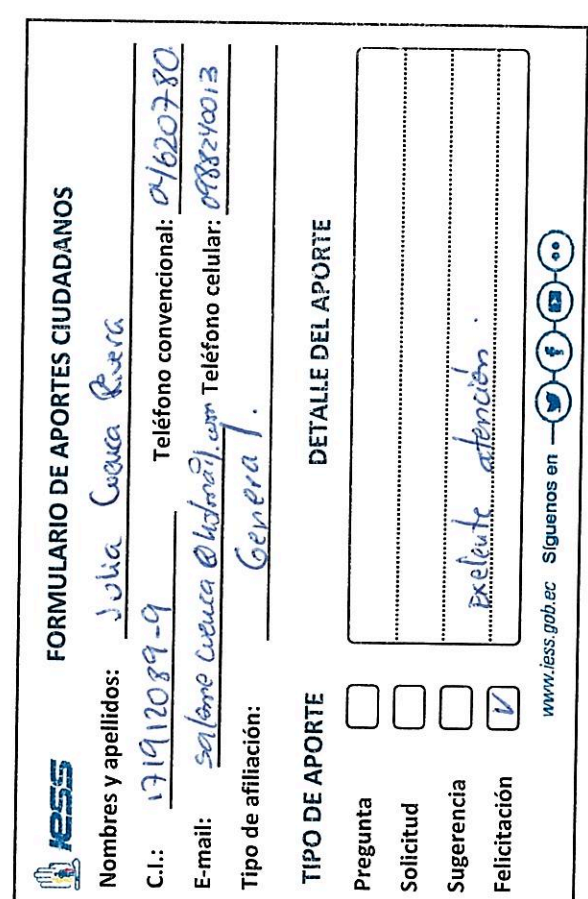 IESS
FORMULARIO DE APORTES CIUDADANOS
Nombres y apellidos: Julia Cuenca Rivera
C.I.: 171912089-9 Teléfono convencional: 04620780
E-mail: Cuenca@hotmail.com Teléfono celular: 0988240013
Tipo de afiliación: General.
TIPO DE APORTE
DETALLE DEL APORTE
Pregunta
Solicitud
Sugerencia
Felicitación
Exelente atención.
www.iess.gob.ec Síguenos en